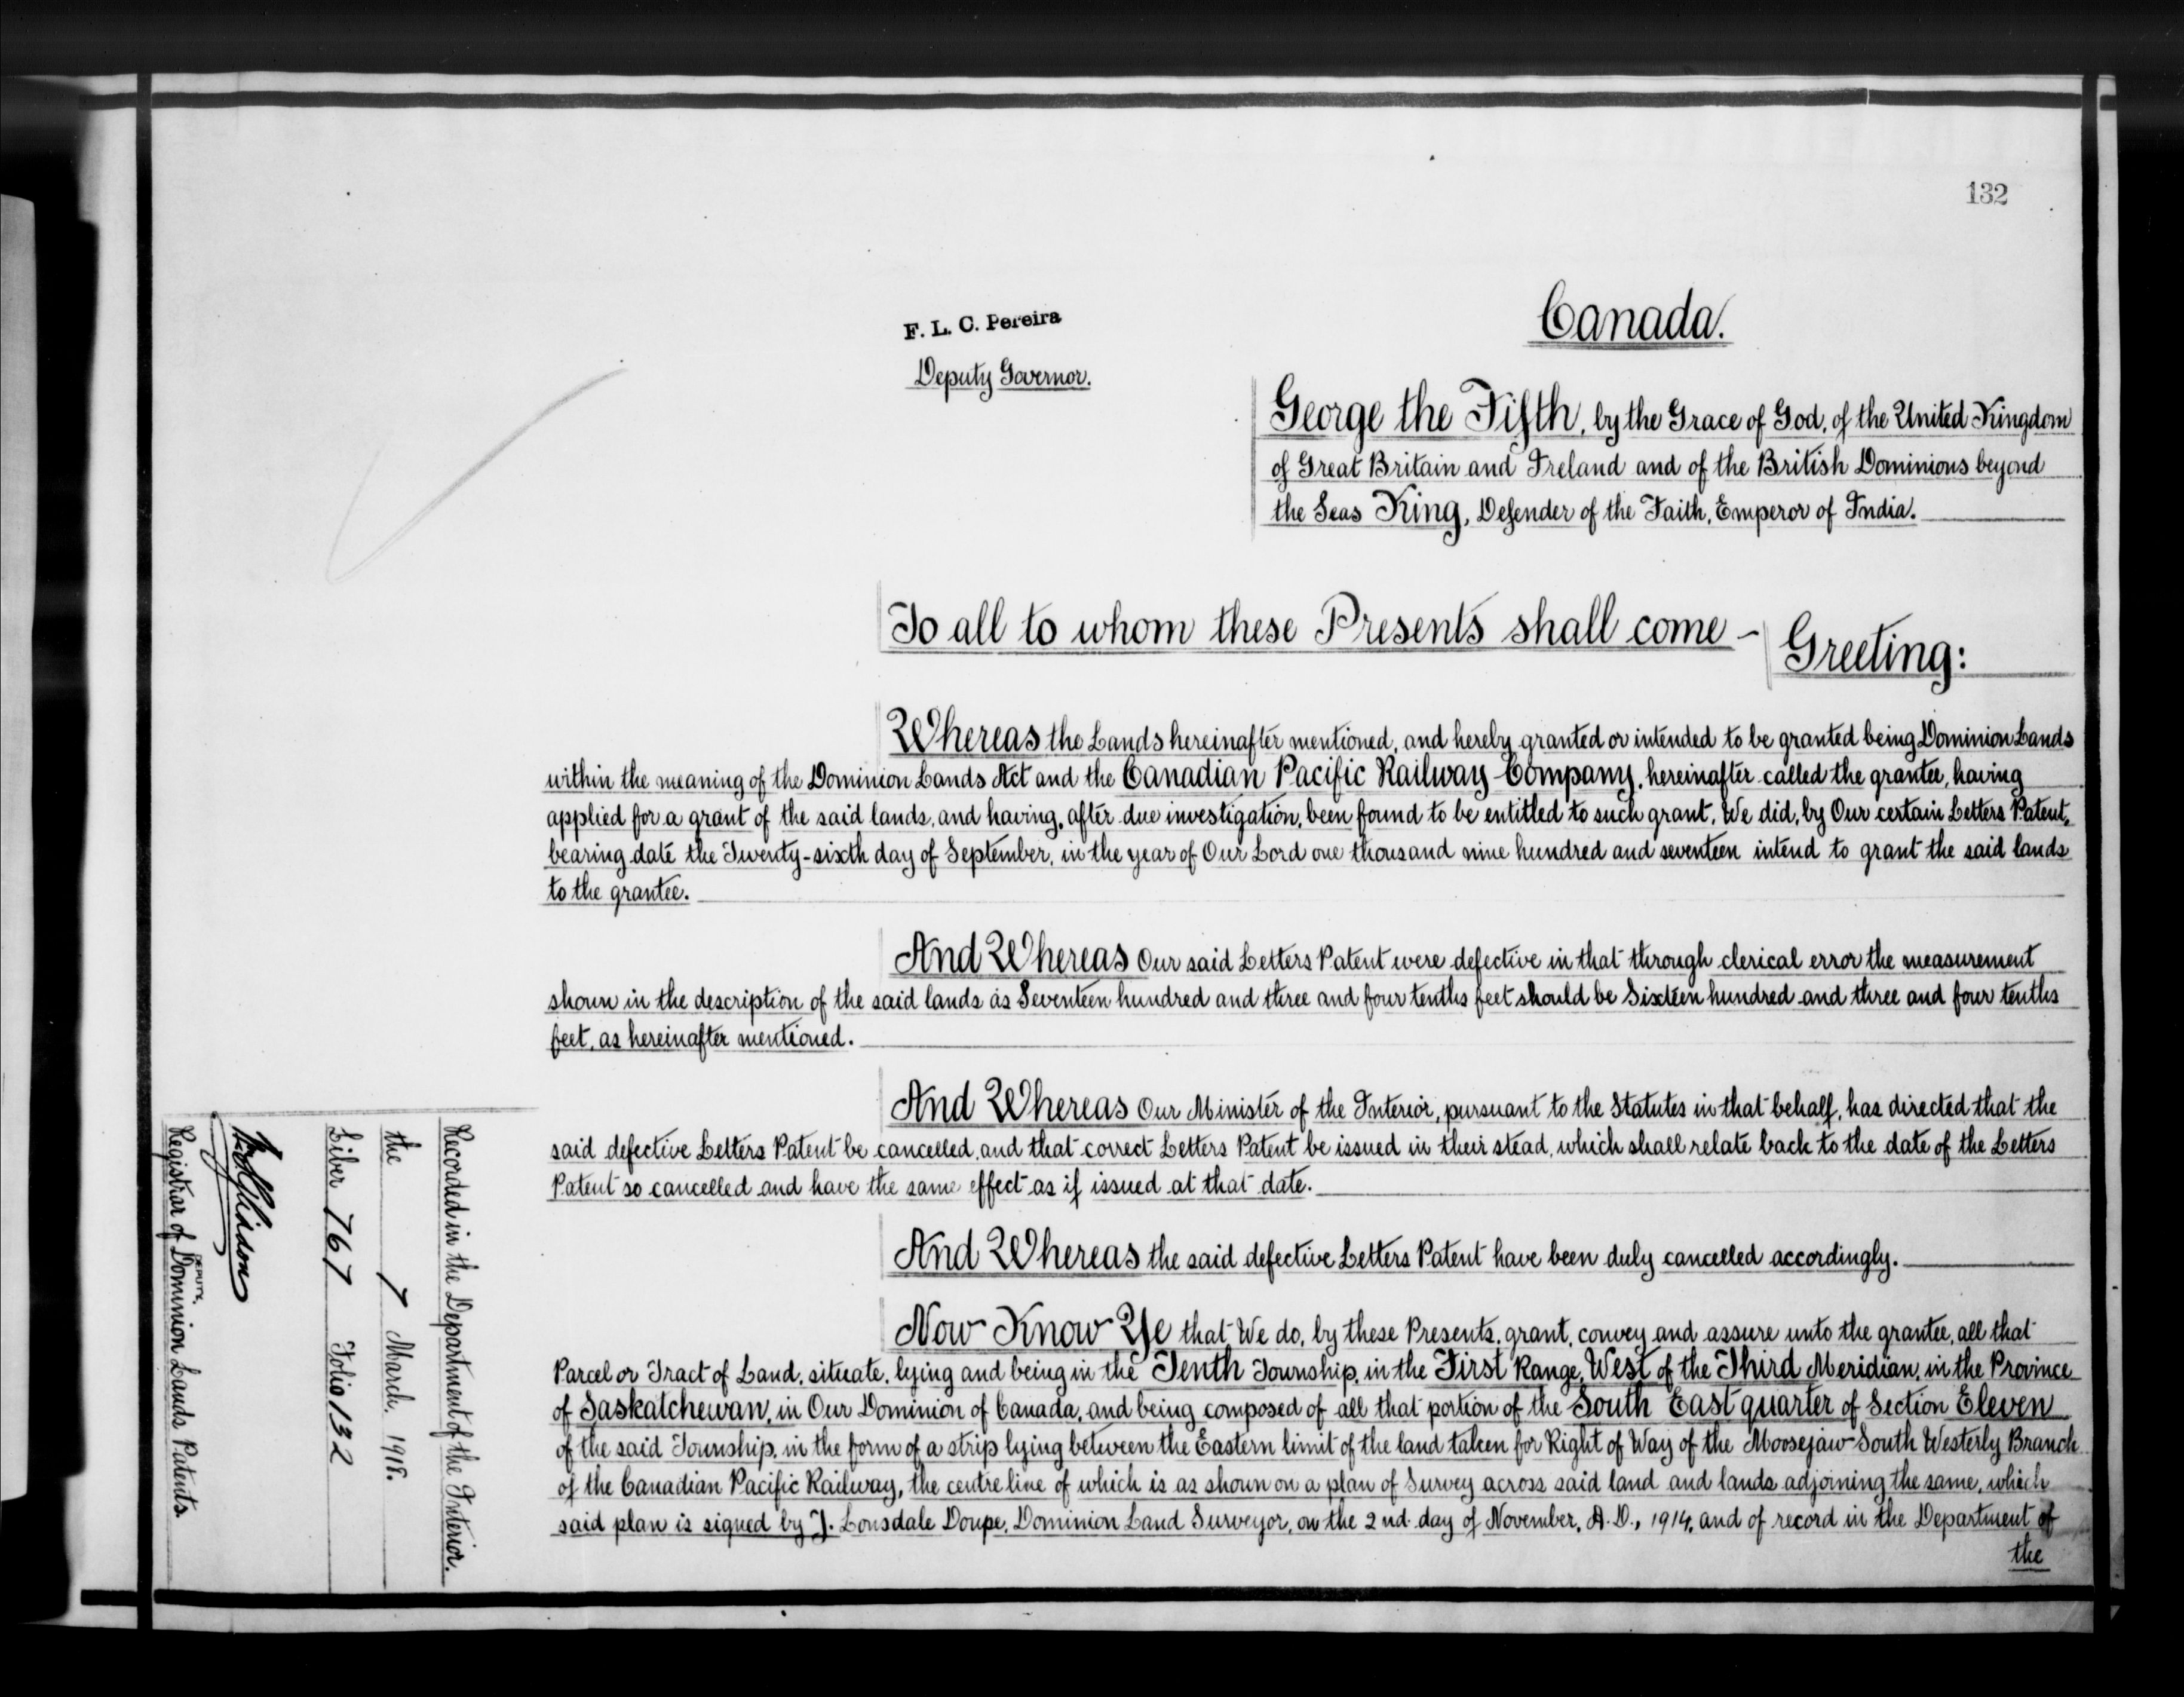 132
F. L. C. Pereira
Deputy Governor.
Canada.
George the Fifth, by the Grace of God, of the United Kingdom
of Great Britain and Ireland and of the British Dominions beyond
the Seas King, Defender of the Faith, Emperor of India.
To all to whom these Presents shall come -
Greeting:
Whereas the Lands hereinafter mentioned, and hereby granted or intended to be granted being Dominion Lands
within the meaning of the Dominion Lands Act and the Canadian Pacific Railway Company, hereinafter called the grantee, having
applied for a grant of the said lands, and having, after due investigation, been found to be entitled to such grant, We did, by Our certain Letters Patent,
bearing date the Twenty-sixth day of September, in the year of Our Lord one thousand nine hundred and seventeen intend to grant the said lands
to the grantee.
And Whereas Our said Letters Patent were defective in that through clerical error the measurement
shown in the description of the said lands as Seventeen hundred and three and four tenths feet should be Sixteen hundred and three and four tenths
feet, as hereinafter mentioned.
And Whereas Our Minister of the Interior, pursuant to the Statutes in that behalf, has directed that the
said defective Letters Patent be cancelled, and that correct Letters Patent be issued in their stead, which shall relate back to the date of the Letters
Patent so cancelled and have the same effect as if issued at that date.
And Whereas the said defective Letters Patent have been duly cancelled accordingly.
Now Know Ye that We do, by these Presents, grant, convey and assure unto the grantee, all that
Parcel or Tract of Land, situate, lying and being in the Tenth Township, in the First Range, West of the Third Meridian, in the Province
of Saskatchewan, in Our Dominion of Canada, and being composed of all that portion of the South East quarter of Section Eleven
of the said Township, in the form of a strip lying between the Eastern limit of the land taken for Right of Way of the Moosejaw South Westerly Branch
of the Canadian Pacific Railway, the centre line of which is as shown on a plan of Survey across said land and lands adjoining the same, which
said plan is signed by J. Lonsdale Doupe, Dominion Land Surveyor, on the 2nd day of November, A.D., 1914, and of record in the Department of
the
Recorded in the Department of the Interior.
the 7 March, 1918.
Liber 767 Folio 132
DEPUTY
Registrar of Dominion Lands Patents.